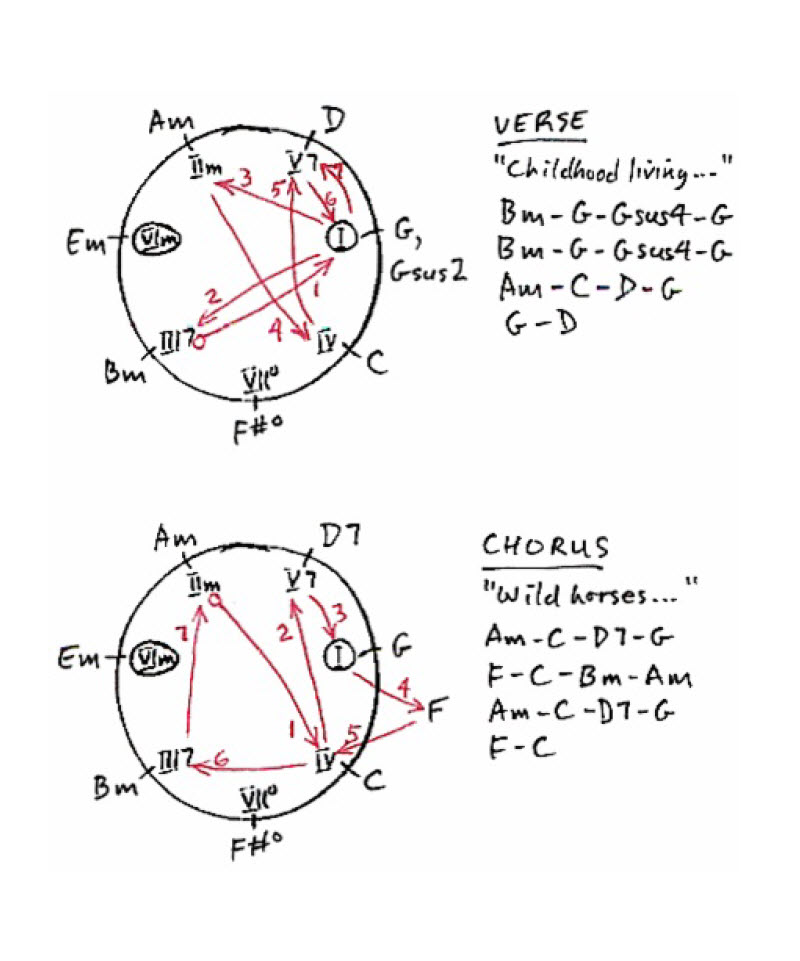 Am
D
VERSE
IIm
V7
"Childhood living..."
3
5
7
6
Em
VIm
I
G,
Gsus2
Bm - G - Gsus4 - G
Bm - G - Gsus4 - G
2
1
Am - C - D - G
4
G - D
III7
IV
Bm
C
VII°
F#°
Am
D7
CHORUS
IIm
V7
"Wild horses..."
7
2
3
Am - C - D7 - G
Em
VIm
I
G
4
F - C - Bm - Am
F
1
5
Am - C - D7 - G
III7
6
IV
F - C
Bm
C
VII°
F#°